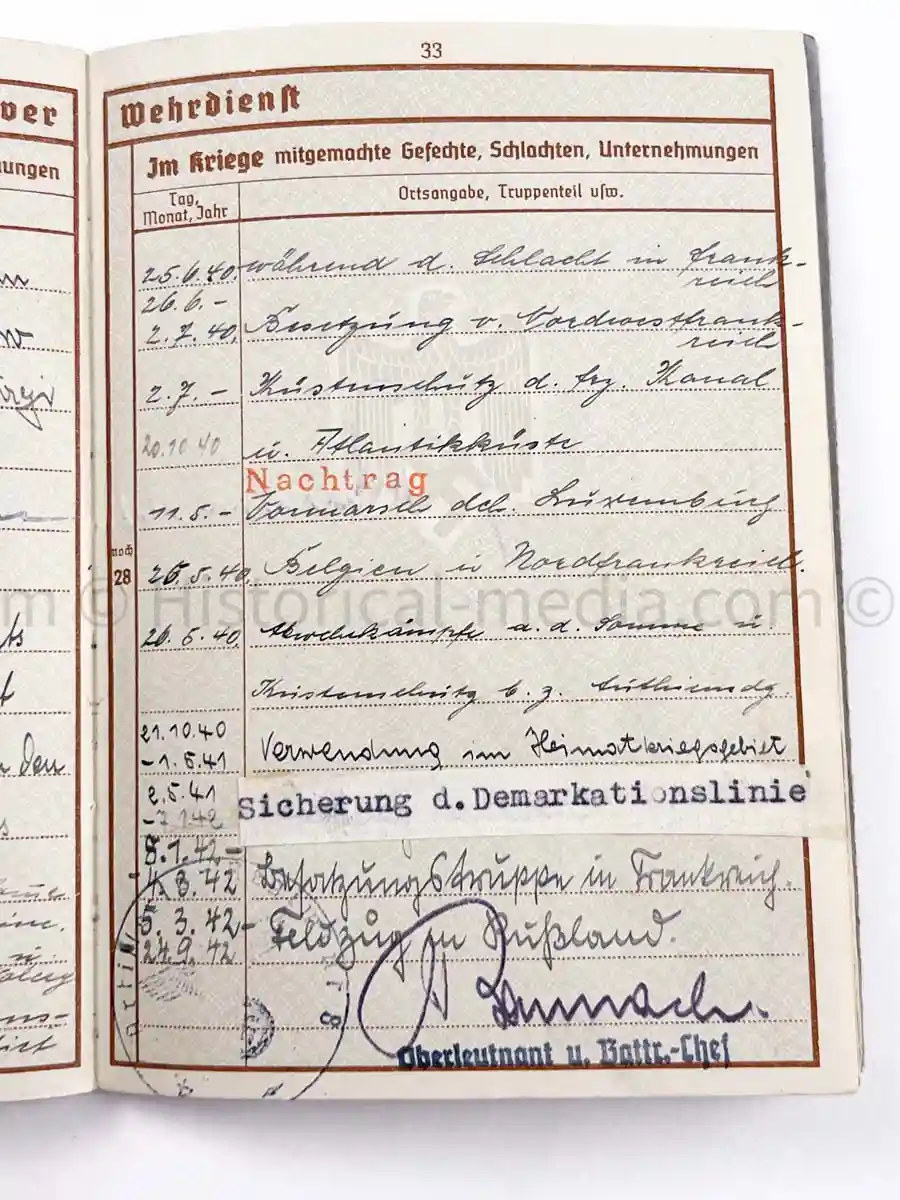 33
ver
Wehrdienst
ungen
Im Kriege mitgemachte Gefechte, Schlachten, Unternehmungen
Tag, Monat, Jahr
Ortsangabe, Truppenteil usw.
25.6.40. während d. Schlacht in Frank-
reich
26.6.-
2.7.40. Besetzung v. Nordwestfrank-
reich
2.7.- Küstenschutz d. frz. Kanal
20.10.40 u. Atlantikküste
Nachtrag
11.5.- Vormarsch dch. Luxemburg
noch
28
25.5.40. Belgien u Nordfrankreich.
26.5.40. Abwehrkämpfe a. d. Somme u
Küstenschutz b. z.
21.10.40
-1.5.41 Verwendung im Heimatkriegsgebiet
den
2.5.41
-7.1.42 Sicherung d. Demarkationslinie
8.1.42-
4.3.42 Besatzungstruppe in Frankreich.
5.3.42-
24.9.42 Feldzug in Rußland.
Oberleutnant u. Battr.-Chef
m © Historical-media.com ©